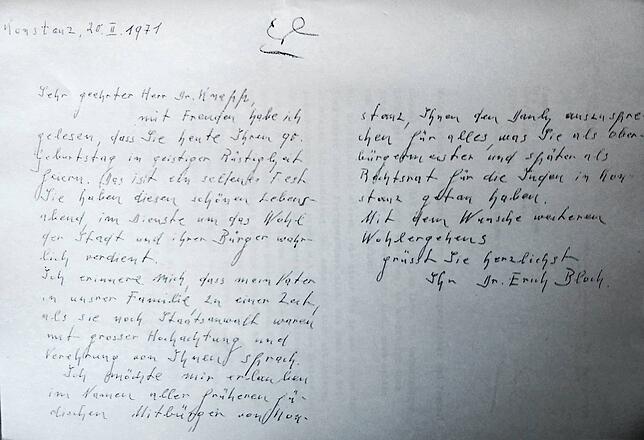 Konstanz, 20. II. 1971
Sehr geehrter Herr Dr. Knapp,
mit Freuden habe ich
gelesen, dass Sie heute Ihren 90.
Geburtstag in geistiger Rüstigkeit
feiern. Das ist ein seltenes Fest
Sie haben diesen schönen Lebens-
abend, im Dienste um das Wohl
der Stadt und ihrer Bürger wahr-
lich verdient.
Ich erinnere mich, dass mein Vater
in unsrer Familie zu einer Zeit,
als sie noch Staatsanwalt waren
mit grosser Hochachtung und
Verehrung von Ihnen sprach.
Ich möchte mir erlauben
im Namen aller früheren jü-
dischen Mitbürger von Kon-
stanz, Ihnen den Dank auszuspre-
chen für alles, was Sie als Ober-
bürgermeister und später als
Rechtsrat für die Juden in Kon-
stanz getan haben.
Mit dem Wunsche weiteren
Wohlergehens
grüsst Sie herzlichst
Ihr Dr. Erich Bloch.